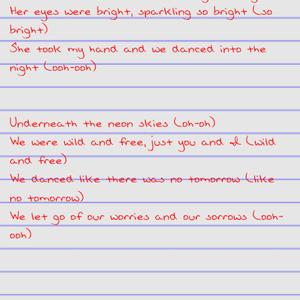 Her eyes were bright, sparkling so bright (so
bright)
She took my hand and we danced into the
night (ooh-ooh)
Underneath the neon skies (oh-oh)
We were wild and free, just you and I (wild
and free)
We danced like there was no tomorrow (like
no tomorrow)
We let go of our worries and our sorrows (ooh-
ooh)